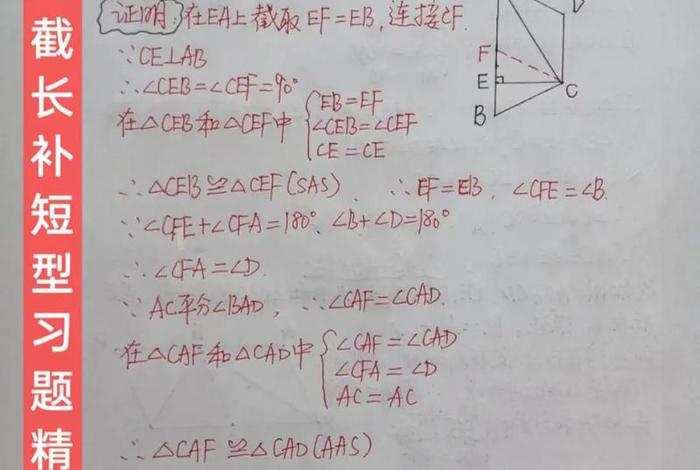 截长补短型习题精
证明:在EA上截取EF=EB,连接CF.
∵CE⊥AB
∴∠CEB=∠CEF=90°
在△CEB和△CEF中
EB=EF
∠CEB=∠CEF
CE=CE
∴△CEB≌△CEF(SAS). ∴EF=EB, ∠CFE=∠B.
∵∠CFE+∠CFA=180°, ∠B+∠D=180°
∴∠CFA=∠D.
∵AC平分∠BAD, ∴∠CAF=∠CAD.
在△CAF和△CAD中
∠CAF=∠CAD
∠CFA=∠D
AC=AC
∴△CAF≌△CAD(AAS)
F
E
B
C